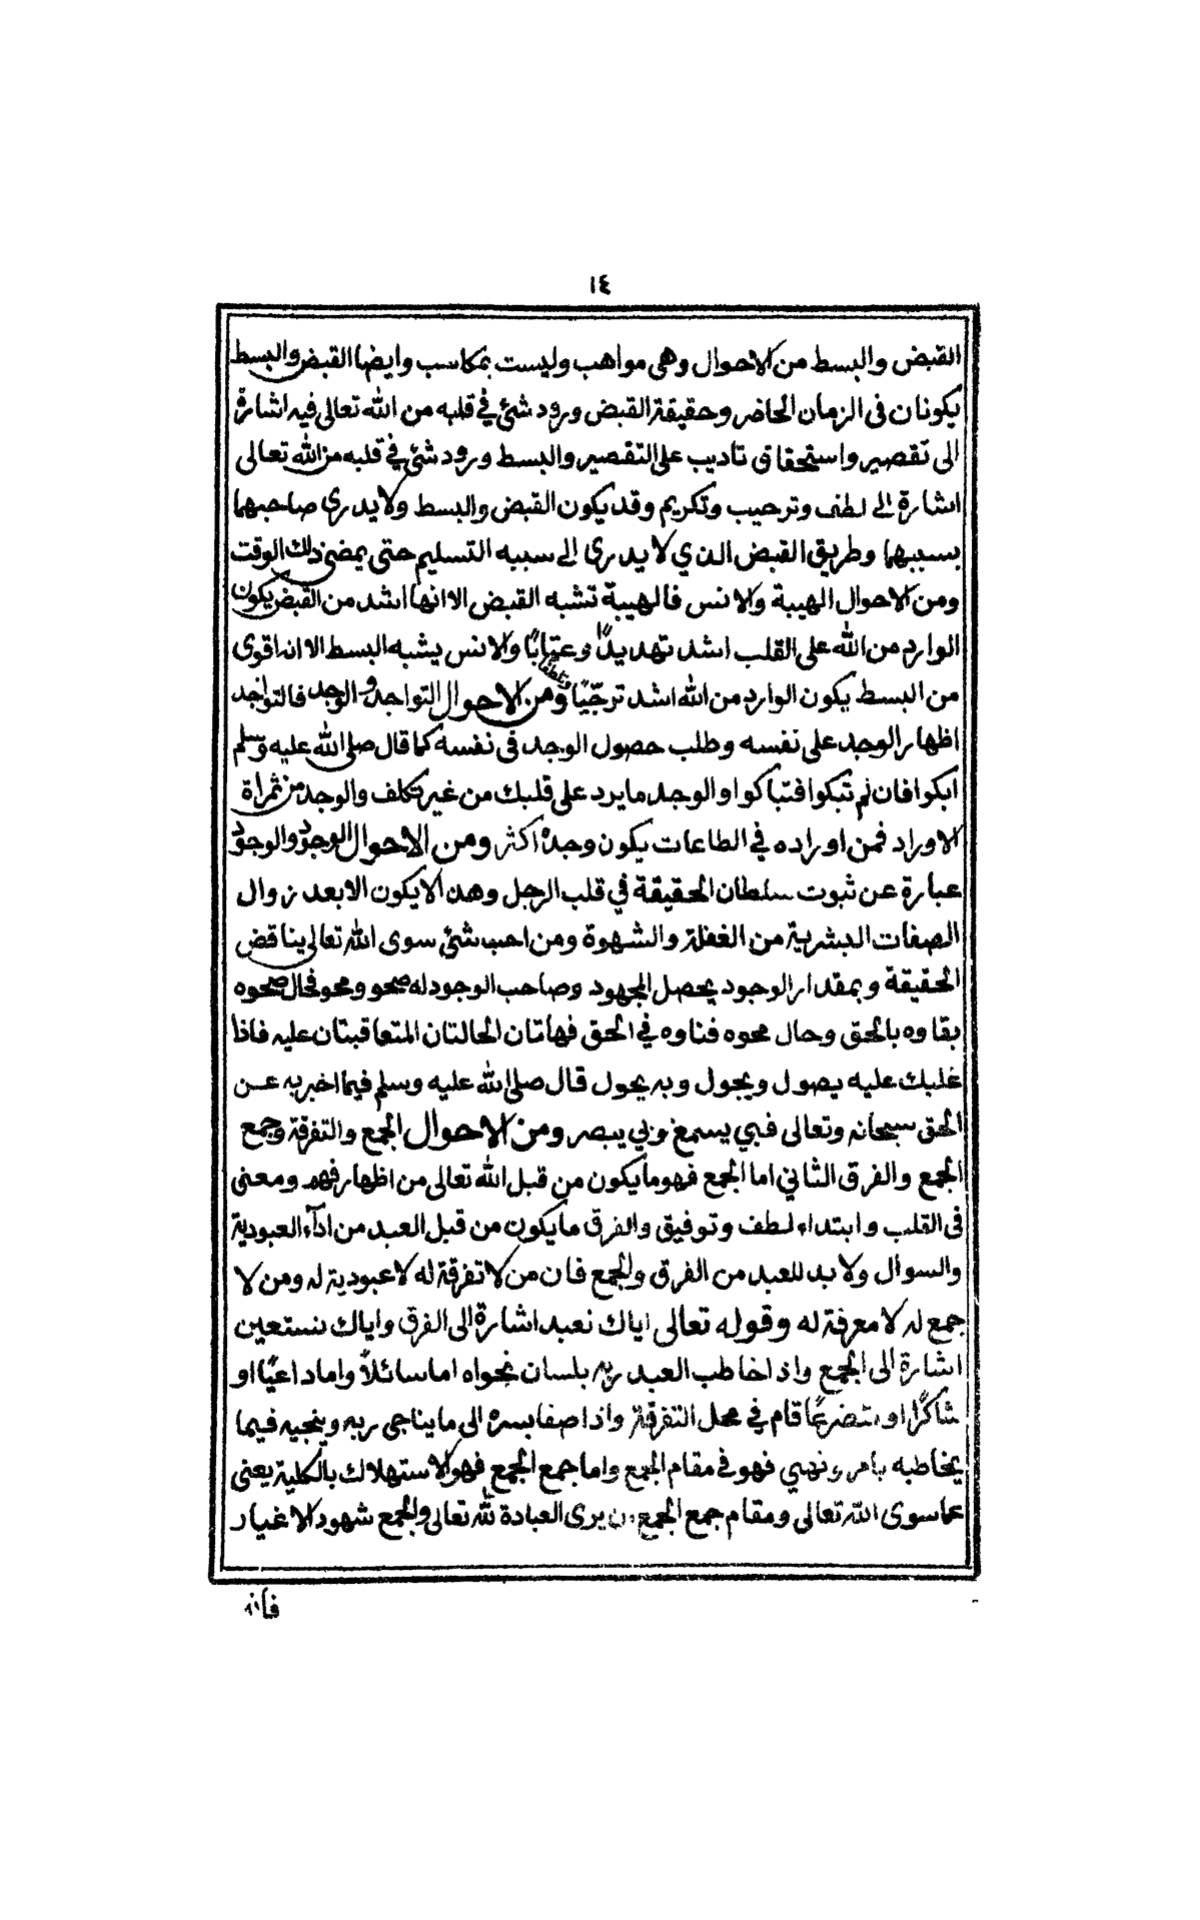 ١٤
القبض والبسط من الاحوال وهى مواهب وليست بمكاسب وايضا القبض والبسط
يكونان فى الزمان الحاضر وحقيقة القبض ورود شئ في قلبه من الله تعالى فيه اشارة
الى تقصير واستحقاق تاديب على التقصير والبسط ورود شئ في قلبه من الله تعالى
اشارة الى لطف وترحيب وتكريم وقد يكون القبض والبسط ولا يدرى صاحبهما
بسببهما وطريق القبض الذي لا يدرى الى سببه التسليم حتى يمضى ذلك الوقت
ومن الاحوال الهيبة والانس فالهيبة تشبه القبض الا انها اشد من القبض يكون
الوارد من الله على القلب اشد تهديدًا وعتابًا والانس يشبه البسط الا انه اقوى
من البسط يكون الوارد من الله اشد ترجّيًا وتلطفا ومن الاحوال التواجد والوجد فالتواجد
اظهار الوجد على نفسه وطلب حصول الوجد فى نفسه كما قال صلى الله عليه وسلم
ابكوا فان لم تبكوا فتباكوا والوجد ما يرد على قلبك من غير تكلف والوجد من ثمراة
الاوراد فمن اوراده في الطاعات يكون وجده اكثر ومن الاحوال الوجود والوجود
عبارة عن ثبوت سلطان الحقيقة في قلب الرجل وهذا لا يكون الا بعد زوال
الصفات البشرية من الغفلة والشهوة ومن احب شئ سوى الله تعالى يناقض
الحقيقة وبمقدار الوجود يحصل المجهود وصاحب الوجود له صحو ومحو فحال صحوه
بقاوه بالحق وحال محوه فناوه في الحق فهاتان الحالتان المتعاقبتان عليه فاذا
غلبك عليه يصول ويجول وبه يحول قال صلى الله عليه وسلم فيما اخبر به عن
الحق سبحانه وتعالى فبي يسمع وبي يبصر ومن الاحوال الجمع والتفرقة وجمع
الجمع والفرق الثاني اما الجمع فهو ما يكون من قبل الله تعالى من اظهار فهم ومعنى
فى القلب وابتداء لطف وتوفيق والفرق ما يكون من قبل العبد من ادآء العبودية
والسوال ولا بد للعبد من الفرق والجمع فان من لا تفرقة له لا عبودية له ومن لا
جمع له لا معرفة له وقوله تعالى اياك نعبد اشارة الى الفرق واياك نستعين
اشارة الى الجمع واذا خاطب العبد ربه بلسان نجواه اما سائلاً واما داعيًا او
شاكرًا او متضرعًا قام في محل التفرقة واذا صفا بسره الى ما يناجى ربه وينجيه فيما
يخاطبه بامر ونهي فهو فى مقام الجمع واما جمع الجمع فهو الاستهلاك بالكلية يعنى
عما سوى الله تعالى ومقام جمع الجمع ان يرى العبادة لله تعالى والجمع شهود الاغيار
فانه